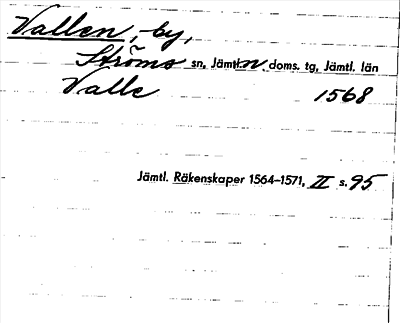 Vallen, by,
Ströms sn, Jämtl.n. doms. tg, Jämtl. län
Valle 1568
Jämtl. Räkenskaper 1564–1571, II s. 95